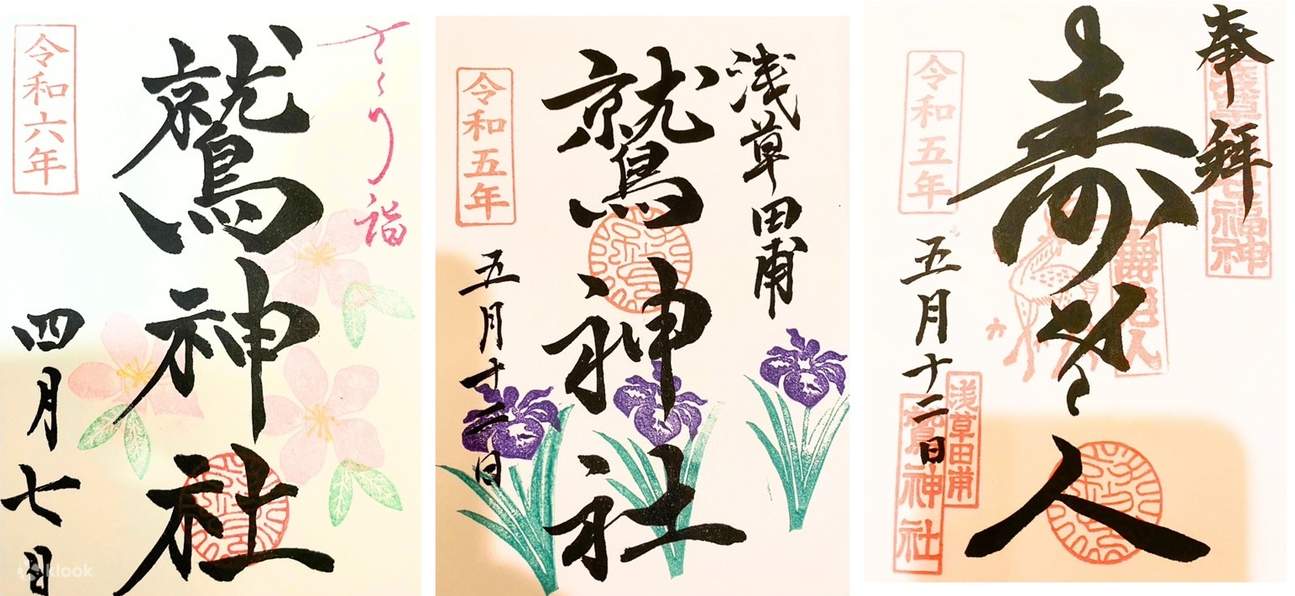 さくら詣
鷲神社
令和六年
四月七日
klook
浅草田甫
鷲神社
令和五年
五月十二日
奉拝
浅草七福神
寿老人
壽老人
令和五年
五月十二日
浅草田甫
鷲神社